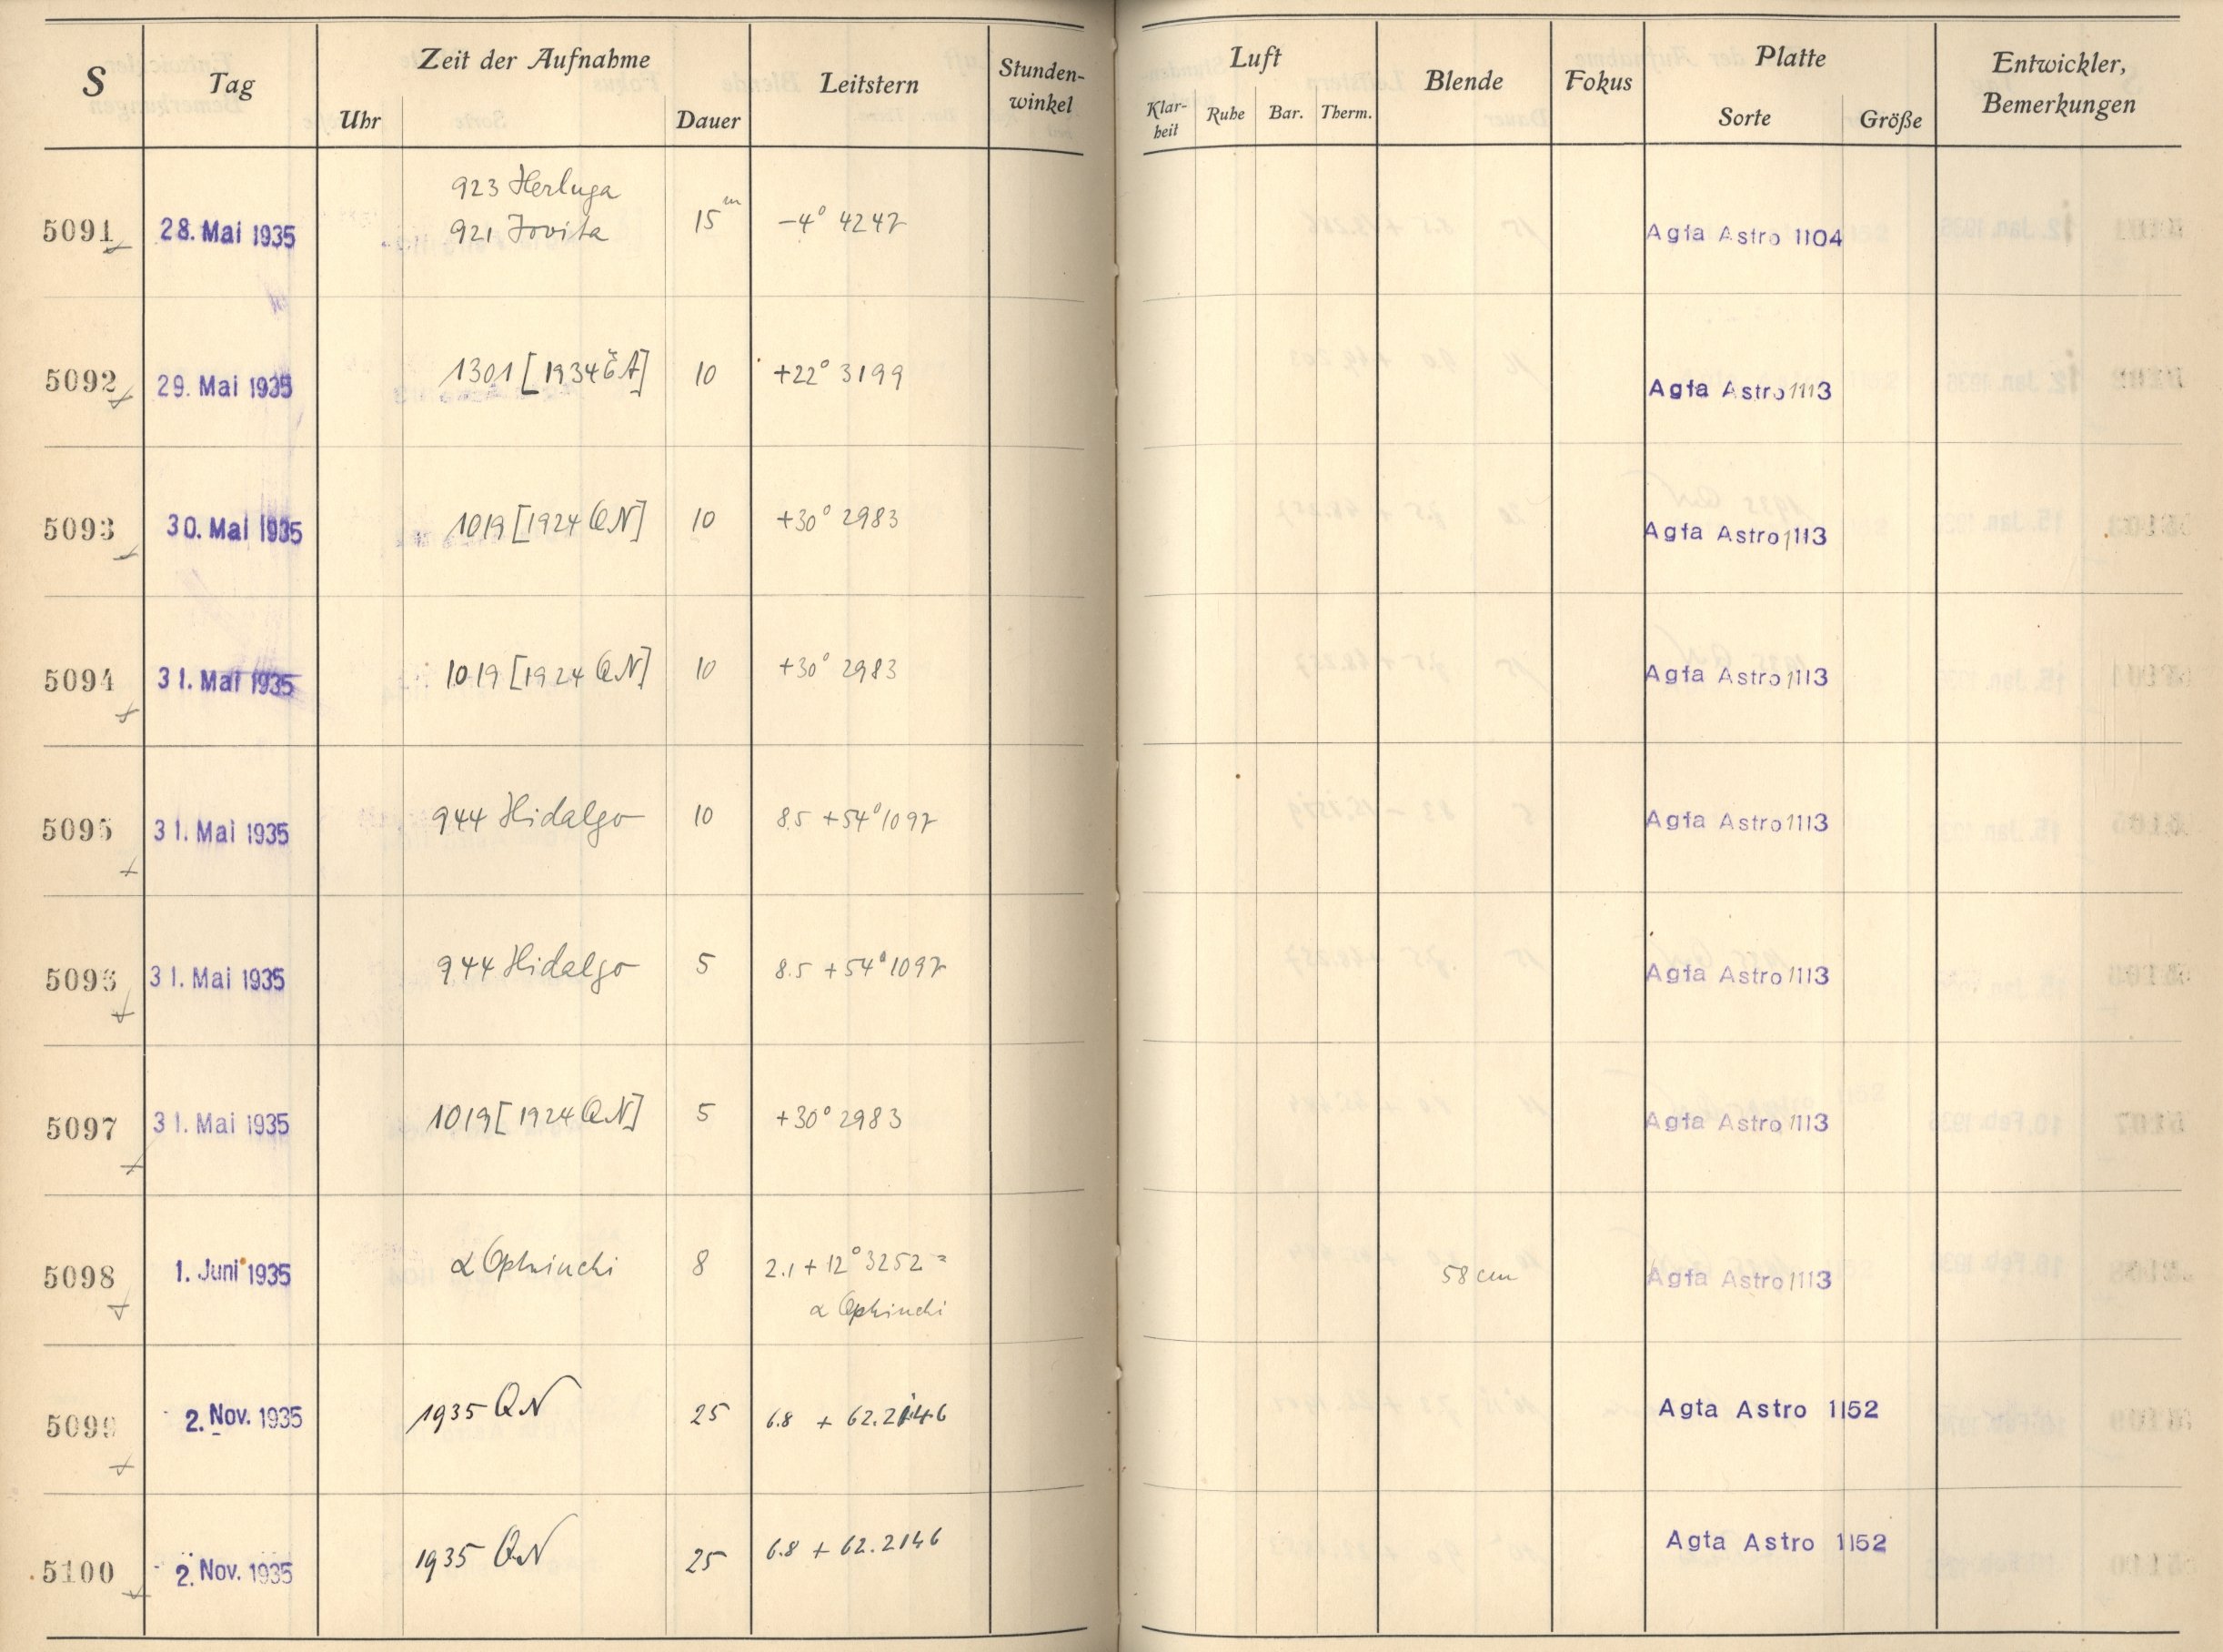 S Tag Zeit der Aufnahme Leitstern Stunden-winkel Luft Blende Fokus Platte Entwickler, Bemerkungen
Uhr Dauer Klar-heit Ruhe Bar. Therm. Sorte Größe
923 Herluga
5091 28. Mai 1935 921 Jovita 15m -4° 4247 Agfa Astro 1104
5092 29. Mai 1935 1301 [1934 A] 10 +22° 3199 Agfa Astro 1113
5093 30. Mai 1935 1019 [1924 QN] 10 +30° 2983 Agfa Astro 1113
5094 31. Mai 1935 1019 [1924 QN] 10 +30° 2983 Agfa Astro 1113
5095 31. Mai 1935 944 Hidalgo 10 8.5 +54° 1097 Agfa Astro 1113
5096 31. Mai 1935 944 Hidalgo 5 8.5 +54° 1097 Agfa Astro 1113
5097 31. Mai 1935 1019 [1924 QN] 5 +30° 2983 Agfa Astro 1113
5098 1. Juni 1935 α Ophiuchi 8 2.1 + 12° 3252 = 58 cm Agfa Astro 1113
α Ophiuchi
5099 2. Nov. 1935 1935 QN 25 6.8 + 62.2146 Agfa Astro 1152
5100 2. Nov. 1935 1935 QN 25 6.8 + 62.2146 Agfa Astro 1152